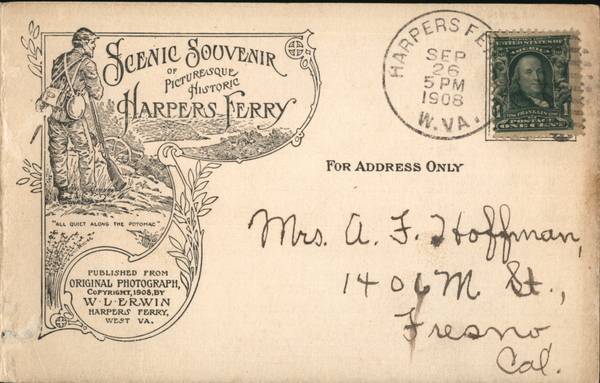 SCENIC SOUVENIR
OF
PICTURESQUE
HISTORIC
HARPERS FERRY
"ALL QUIET ALONG THE POTOMAC"
PUBLISHED FROM
ORIGINAL PHOTOGRAPH,
COPYRIGHT, 1908, BY
W. L. ERWIN
HARPERS FERRY,
WEST VA.
HARPERS FE
SEP
26
5 PM
1908
W. VA.
FRANKLIN
POSTAGE
ONE CENT
FOR ADDRESS ONLY
Mrs. A. F. Hoffman,
1406 M St.,
Fresno
Cal.